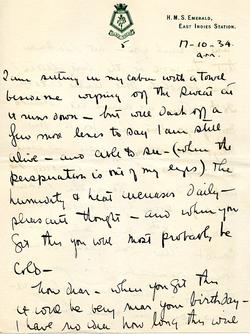 H.M.S. EMERALD,
EAST INDIES STATION.
17-10-34
am.
I am sitting in my cabin with a towel
beside me wiping off the sweat as
it runs down – but will dash off a
few more lines to say I am still
alive – and able to see – (when the
perspiration is out of my eyes) The
humidity & heat increases daily –
pleasant thought – and when you
get this you will most probably be
cold –
Now dear – when you get this
it will be very near your birthday –
I have no idea how long this will